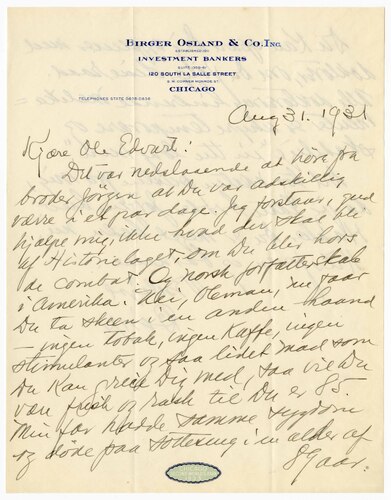 BIRGER OSLAND & CO. INC.
ESTABLISHED 1911
INVESTMENT BANKERS
120 SOUTH LA SALLE STREET
S. W. CORNER MONROE ST.
CHICAGO
TELEPHONES STATE 0878-0838
Aug 31. 1931
Kjære Ole Edvart:
Det var nedslaaende at höre fra
broder Jörgen at Du var adskillig
værre i et par dage. Jeg forstaar, gud
hjælpe mig, ikke hvad der skal bli
af Historielaget, om Du blir hors
de combat. Og norsk forfatterskab
i Amerika! Nei, Oleman, nu faar
Du ta skeen i en anden haand
– ingen tobak, ingen Kaffe, ingen
stimulanter og saa lidet mad som
Du kan greie Dig med, saa vil Du
være frisk og rask til Du er 85.
Min far hadde samme sygdom
og döde paa i en alder af
8 aar.